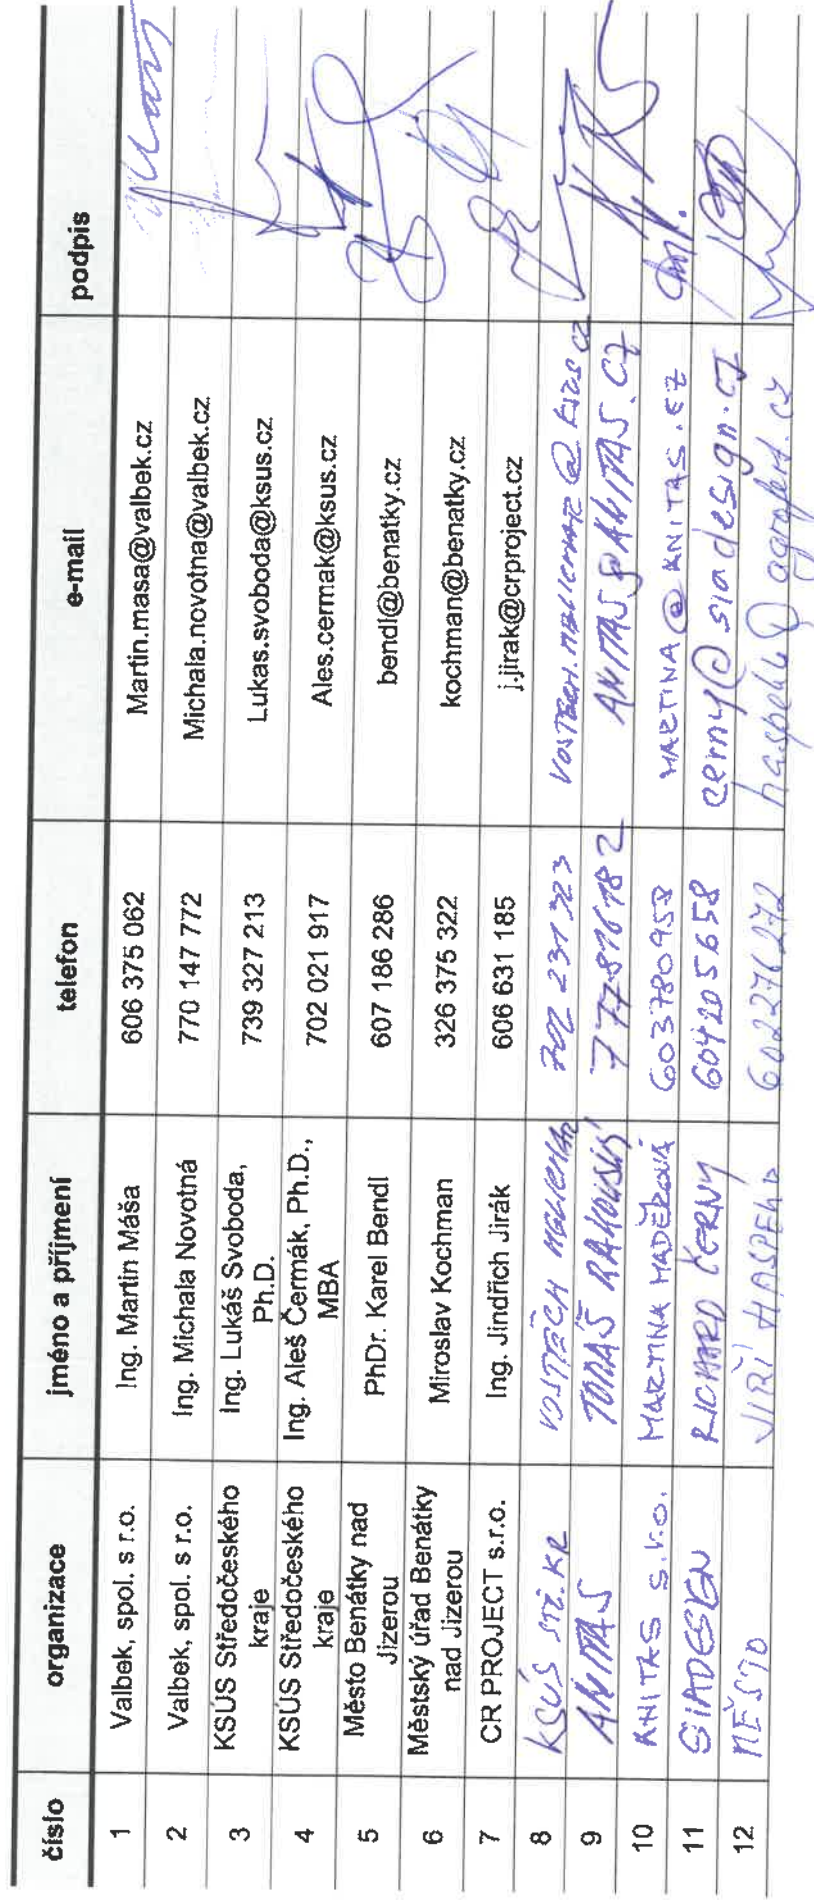 číslo organizace jméno a příjmení telefon e-mail podpis
1 Valbek, spol. s r.o. Ing. Martin Máša 606 375 062 Martin.masa@valbek.cz
2 Valbek, spol. s r.o. Ing. Michala Novotná 770 147 772 Michala.novotna@valbek.cz
3 KSÚS Středočeského kraje Ing. Lukáš Svoboda, Ph.D. 739 327 213 Lukas.svoboda@ksus.cz
4 KSÚS Středočeského kraje Ing. Aleš Čermák, Ph.D., MBA 702 021 917 Ales.cermak@ksus.cz
5 Město Benátky nad Jizerou PhDr. Karel Bendl 607 186 286 bendl@benatky.cz
6 Městský úřad Benátky nad Jizerou Miroslav Kochman 326 375 322 kochman@benatky.cz
7 CR PROJECT s.r.o. Ing. Jindřich Jirák 606 631 185 j.jirak@crproject.cz
8 KSÚS STČ. KR 702 231 323
9 ANITAS TOMÁŠ RAKOUSKÝ 777816782 ANITAS@ANITAS.CZ
10 ANITAS s.r.o. MARTINA MADĚROVÁ 603780958 MARTINA@ANITAS.CZ
11 SIADESIGN RICHARD ČERNÝ 604205658 cerny@siadesign.cz
12 MĚSTO JIŘÍ 602276272